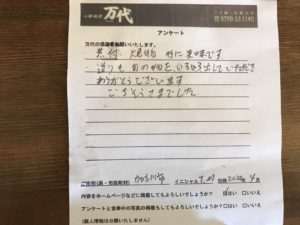 万代
0790-32-1140
アンケート
万代の感想をお願いいたします。
煮付、焼物 特に美味です
造りも旬の物をいろいろ出していただき
ありがとうございます
ごちそうさまでした
ご住所(県・市区町村) 加古川市 イニシャル T.M 日時 2020年 4月
内容をホームページなどに掲載してもよろしいでしょうか? はい □いいえ
アンケートと食事中の写真の掲載もしてもよろしいでしょうか? □はい □いいえ
(個人情報は公開いたしません)